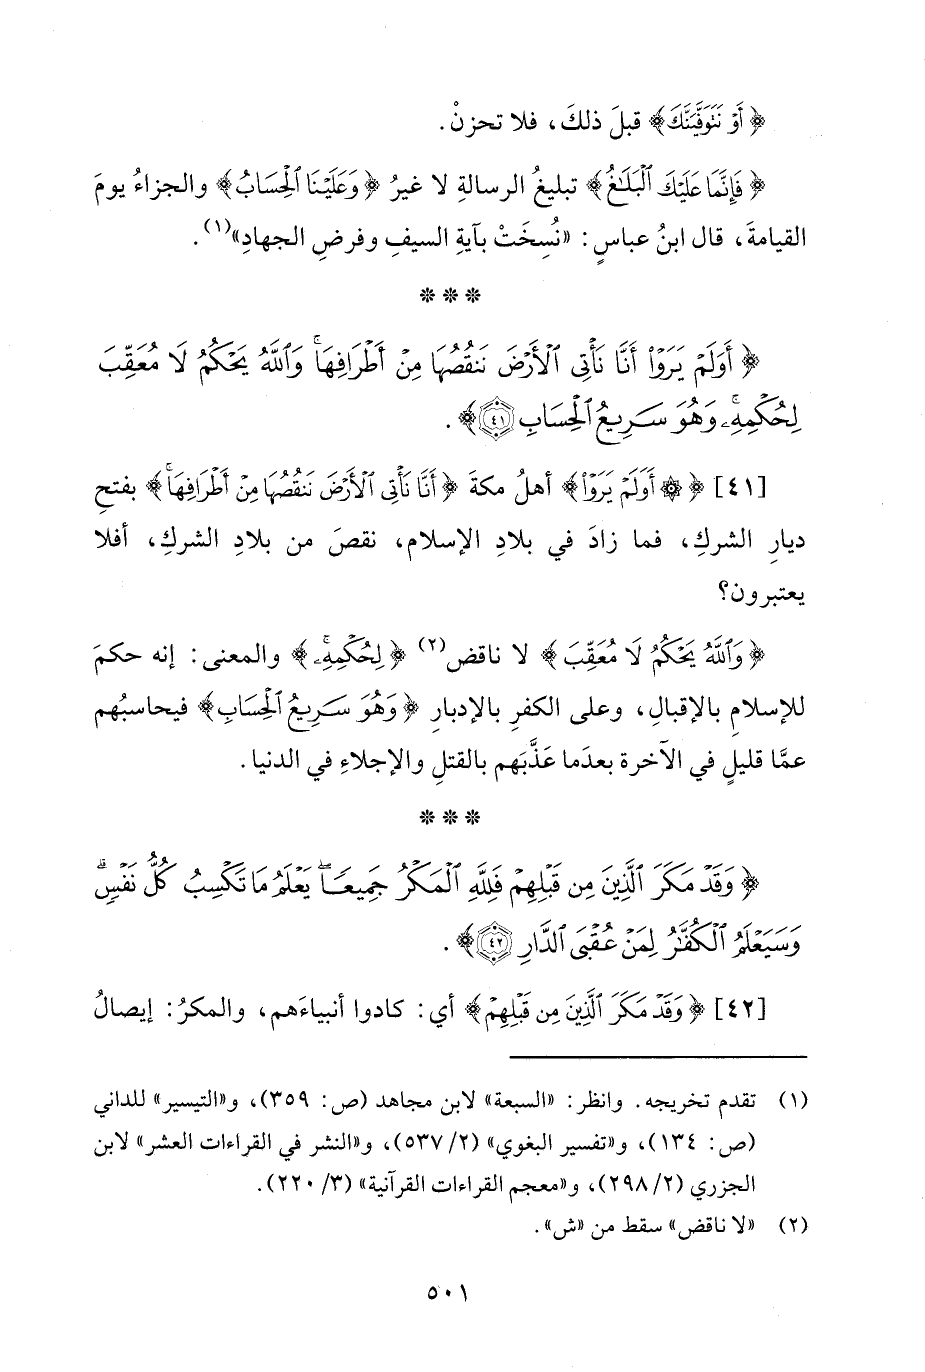 ﴿أَوْ نَتَوَفَّيَنَّكَ﴾ قبلَ ذلكَ، فلا تحزنْ.
﴿فَإِنَّمَا عَلَيْكَ ٱلْبَلَٰغُ﴾ تبليغُ الرسالةِ لا غيرُ ﴿وَعَلَيْنَا ٱلْحِسَابُ﴾ والجزاءُ يومَ
القيامةَ، قال ابنُ عباسٍ: «نُسِخَتْ بآيةِ السيفِ وفرضِ الجهادِ»(١).
* * *
﴿أَوَلَمْ يَرَوْا۟ أَنَّا نَأْتِى ٱلْأَرْضَ نَنقُصُهَا مِنْ أَطْرَافِهَا ۚ وَٱللَّهُ يَحْكُمُ لَا مُعَقِّبَ
لِحُكْمِهِۦ ۚ وَهُوَ سَرِيعُ ٱلْحِسَابِ ٤١﴾.
[٤١] ﴿۞ أَوَلَمْ يَرَوْا۟﴾ أهلُ مكةَ ﴿أَنَّا نَأْتِى ٱلْأَرْضَ نَنقُصُهَا مِنْ أَطْرَافِهَا ۚ﴾ بفتحِ
ديارِ الشركِ، فما زادَ في بلادِ الإسلام، نقصَ من بلادِ الشركِ، أفلا
يعتبرون؟
﴿وَٱللَّهُ يَحْكُمُ لَا مُعَقِّبَ﴾ لا ناقض(٢) ﴿لِحُكْمِهِۦ ۚ﴾ والمعنى: إنه حكمَ
للإسلامِ بالإقبالِ، وعلى الكفرِ بالإدبارِ ﴿وَهُوَ سَرِيعُ ٱلْحِسَابِ﴾ فيحاسبُهم
عمَّا قليلٍ في الآخرة بعدَما عَذَّبَهم بالقتلِ والإجلاءِ في الدنيا.
* * *
﴿وَقَدْ مَكَرَ ٱلَّذِينَ مِن قَبْلِهِمْ فَلِلَّهِ ٱلْمَكْرُ جَمِيعًا ۖ يَعْلَمُ مَا تَكْسِبُ كُلُّ نَفْسٍ ۗ
وَسَيَعْلَمُ ٱلْكُفَّٰرُ لِمَنْ عُقْبَى ٱلدَّارِ ٤٢﴾.
[٤٢] ﴿وَقَدْ مَكَرَ ٱلَّذِينَ مِن قَبْلِهِمْ﴾ أي: كادوا أنبياءَهم، والمكرُ: إيصالُ
(١) تقدم تخريجه. وانظر: «السبعة» لابن مجاهد (ص: ٣٥٩)، و«التيسير» للداني
(ص: ١٣٤)، و«تفسير البغوي» (٢/ ٥٣٧)، و«النشر في القراءات العشر» لابن
الجزري (٢/ ٢٩٨)، و«معجم القراءات القرآنية» (٣/ ٢٢٠).
(٢) «لا ناقض» سقط من «ش».
٥٠١